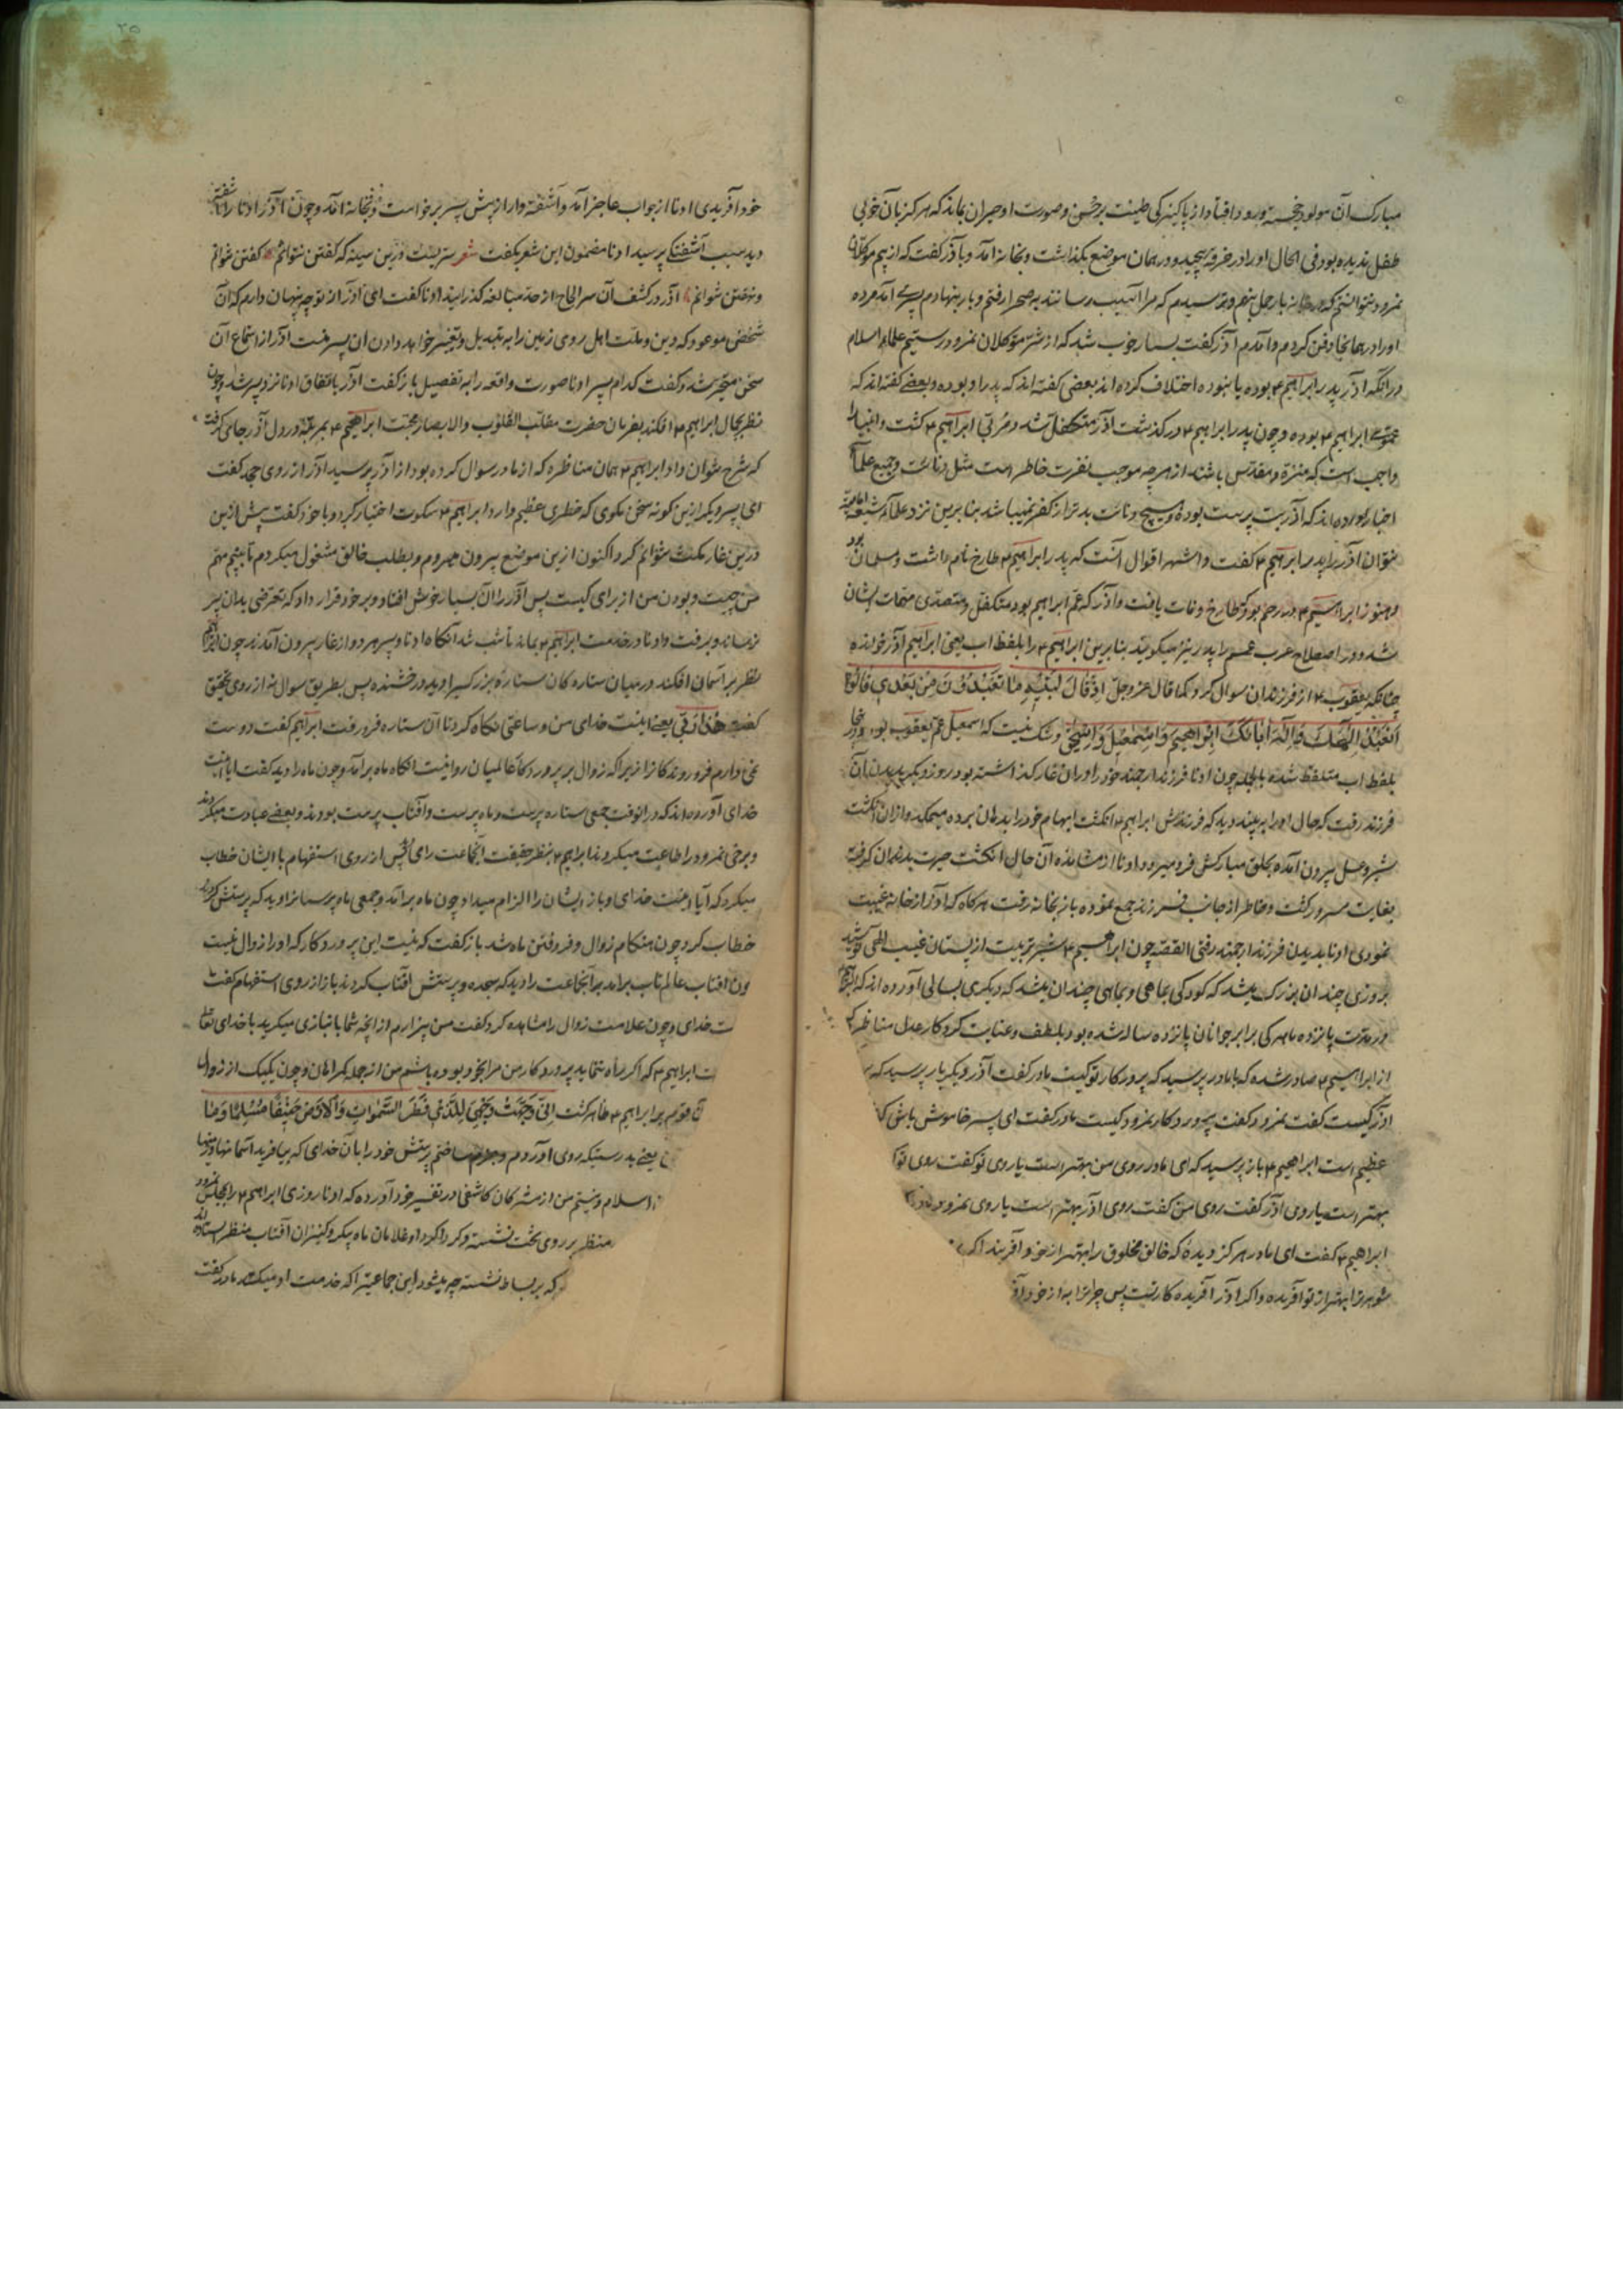 مبارک آن مولود خجسته ورود افتاد از پاکیزکی طینت بر حسن و صورت او حیران بماند که هرکز بآن خوبی
طفل ندیده بود فی الحال او را در خرقه پیچید و در همان موضع بکذاشت و بخانه آمد و با آذر کفت که از بیم موکلان
نمرود نتوانستم که در خانه بار حمل بنهم و ترسیدم که مرا آسیب رسانند به صحرا رفتم و بار بنهادم پسری آمد مرده
او را در همانجا دفن کردم و آمدم آذر کفت بسیار خوب شد که از شر موکلان نمرود رستیم علماء اسلام
در آنکه آذر پدر ابراهیم ۴ بوده یا نبوده اختلاف کرده اند بعضی کفته اند که پدر او بوده و بعضی کفته اند که
عموی ابراهیم ۴ بوده و چون پدر ابراهیم ۴ در کذشت آذر متکفل شد و مربی ابراهیم ۴ کشت و انبیا را
واجب است که منزه و مقدس باشند از هرچه موجب نفرت خاطر است مثل دنائت و جمیع علما
اخبار آورده اند که آذر بت پرست بوده و هیچ دنائت بدتر از کفر نمیباشد بنابرین نزد علماء شیعه امامیه
نتوان آذر را پدر ابراهیم ۴ کفت و اشهر اقوال آنست که پدر ابراهیم ۴ طارخ نام داشت و مسلمان بود
و هنوز ابراهیم ۴ در رحم بود که طارخ وفات یافت و آذر که عم ابراهیم بود متکفل و متصدی مهمات ایشان
شد و در اصطلاح عرب عم را پدر نیز میکویند بنابرین ابراهیم ۴ را بلفظ اب یعنی ابراهیم آذر خوانده
چنانکه یعقوب ۴ از فرزندان سوال کرد کما قال عز و جل اذ قال لبنیه ما تعبدون من بعدی قالوا
نعبد الهک و اله ابائک ابراهیم و اسمعیل و اسحق و شک نیست که اسمعیل عم یعقوب بود و در اینجا
بلفظ اب متلفظ شده بالجمله چون اونا فرزند ارجمند خود را در ان غار کذاشته بود روز دیکر بدیدن آن
فرزند رفت که حال او را به بیند دید که فرزندش ابراهیم ۴ انکشت ابهام خود را بدهان برده میمکد و از ان انکشت
شیر و عسل بیرون آمده بحلق مبارکش فرو میرود اونا از مشاهده آن حال انکشت حیرت بدندان کرفته
بغایت مسرور کشت و خاطر از جانب فرزند جمع نموده باز بخانه رفت هرکاه که آذر از خانه غیبت
نمودی اونا بدیدن فرزند ارجمند رفتی القصه چون ابراهیم ۴ شیر تربیت از پستان غیب الهی نوشید
بروزی چندان بزرک میشد که کودکی بماهی و بماهی چندان میشد که دیکری بسالی آورده اند که
در مدت پانزده ماهکی برابر جوانان پانزده ساله شده بود بلطف و عنایت کردکار عدل مناظره که
از ابراهیم ۴ صادر شده که با مادر پرسید که پروردکار تو کیست مادر کفت آذر دیکر بار پرسید که
آذر کیست کفت نمرود کفت پروردکار نمرود کیست مادر کفت ای پسر خاموش باش که
عظیم است ابراهیم ۴ باز پرسید که ای مادر روی من بهتر است یا روی تو کفت روی تو
بهتر است یا روی آذر کفت روی من کفت روی آذر بهتر است یا روی نمرود
ابراهیم ۴ کفت ای مادر هرکز دیده که خالق مخلوق را بهتر از خود آفریند اکر
شوهر ترا بهتر از تو آفریده و اکر آذر آفریده کار تست پس چرا ترا به از خود
خود آفریدی اونا از جواب عاجز آمد و آشفته وار از پیش پسر برخواست و بخانه آمد و چون آذر اونا را آشفته
دید سبب آشفتکی پرسید اونا مضمون این شعر بکفت شعر سریست درین سینه که کفتن نتوانم کفتن نتوانم
و نهفتن نتوانم آذر در کشف آن سر الحاح از حد مبالغه کذرانید اونا کفت ای آذر از تو چه پنهان دارم که آن
شخص موعود که دین و ملت اهل روی زمین را به تبدیل و تغییر خواهد دادن آن پسر منست آذر از استماع آن
سخن متحیر شد و کفت کدام پسر اونا صورت واقعه را به تفصیل باز کفت آذر باتفاق اونا نزد پسر شد و چون
نظر بجمال ابراهیم ۴ افکند بفرمان حضرت مقلب القلوب والابصار محبت ابراهیم ۴ بمرتبه در دل آذر جای کرفت
که شرح نتوان داد ابراهیم ۴ همان مناظره که از مادر سوال کرده بود از آذر پرسید آذر از روی جهد کفت
ای پسر دیکر ازین کونه سخن مکوی که خطری عظیم دارد ابراهیم ۴ سکوت اختیار کرد و با خود کفت پیش ازین
درین غار مکث نتوانم کرد اکنون ازین موضع بیرون میروم و بطلب خالق مشغول میکردم تا ببینم مهم
من چیست و بودن من از برای کیست پس آذر را آن بسیار خوش افتاد و بر خود قرار داد که تعرضی بدان پسر
نرساند و برفت و اونا در خدمت ابراهیم ۴ بماند تا شب شد آنکاه اونا و پسر هر دو از غار بیرون آمدند چون ابراهیم
نظر بر آسمان افکند در میان ستاره کان ستاره بزرک سیر او دید درخشنده پس بطریق سوال نه از روی تحقیق
کفت هذا ربی یعنی اینست خدای من و ساعتی نکاه کرد تا آن ستاره فرو رفت ابراهیم کفت دوست
نمی دارم فرو روندکانرا زیرا که زوال بر پروردکار عالمیان روا نیست انکاه ماه برآمد و چون ماه را دید کفت آیا اینست
خدای آورده اند که در آنوقت جمعی ستاره پرست و ماه پرست و آفتاب پرست بودند و بعضی عبادت میکردند
و برخی نمرود را طاعت میکردند ابراهیم ۴ بنظر حقیقت آنجماعت پس از روی استفهام با ایشان خطاب
میکرد که آیا اینست خدای و باز ایشان را الزام میداد چون ماه برآمد و جمعی ماه پرستانرا دید که پرستش کردند
خطاب کرد چون هنکام زوال و فرو رفتن ماه شد باز کفت که نیست این پروردکار که او را زوال نیست
ون آفتاب عالمتاب برآمد برآنجماعت را دید که سجده و پرستش آفتاب کردند باز از روی استفهام کفت
ت خدای و چون علامت زوال را مشاهده کرد کفت من بیزارم از آنچه شما با نبازی میکرید با خدای تعالی
ت ابراهیم ۴ که اکر راه ننماید پروردکار من مرا بخود بوده باشم من از جمله کمراهان و چون یکیک از زوال
آن قوم بر ابراهیم ۴ ظاهر کشت انی وجهت وجهی للذی فطر السموات والارض حنیفا مسلما وما
یعنی بدرستیکه روی آوردم و پرستش خود را بآن خدای که بیافرید آسمانها و زمینها
اسلام و نیستم من از مشرکان کاشفی در تفسیر خود آورده که اونا روزی ابراهیم ۴ را بمجلس نمرود
منظر بر روی تخت نشسته و کرداکرد او غلامان ماه پیکر و کنیزان آفتاب منظر ایستاده
که بر بساط نشسته چه میشود این جماعت که خدمت او میکنند مادر کفت